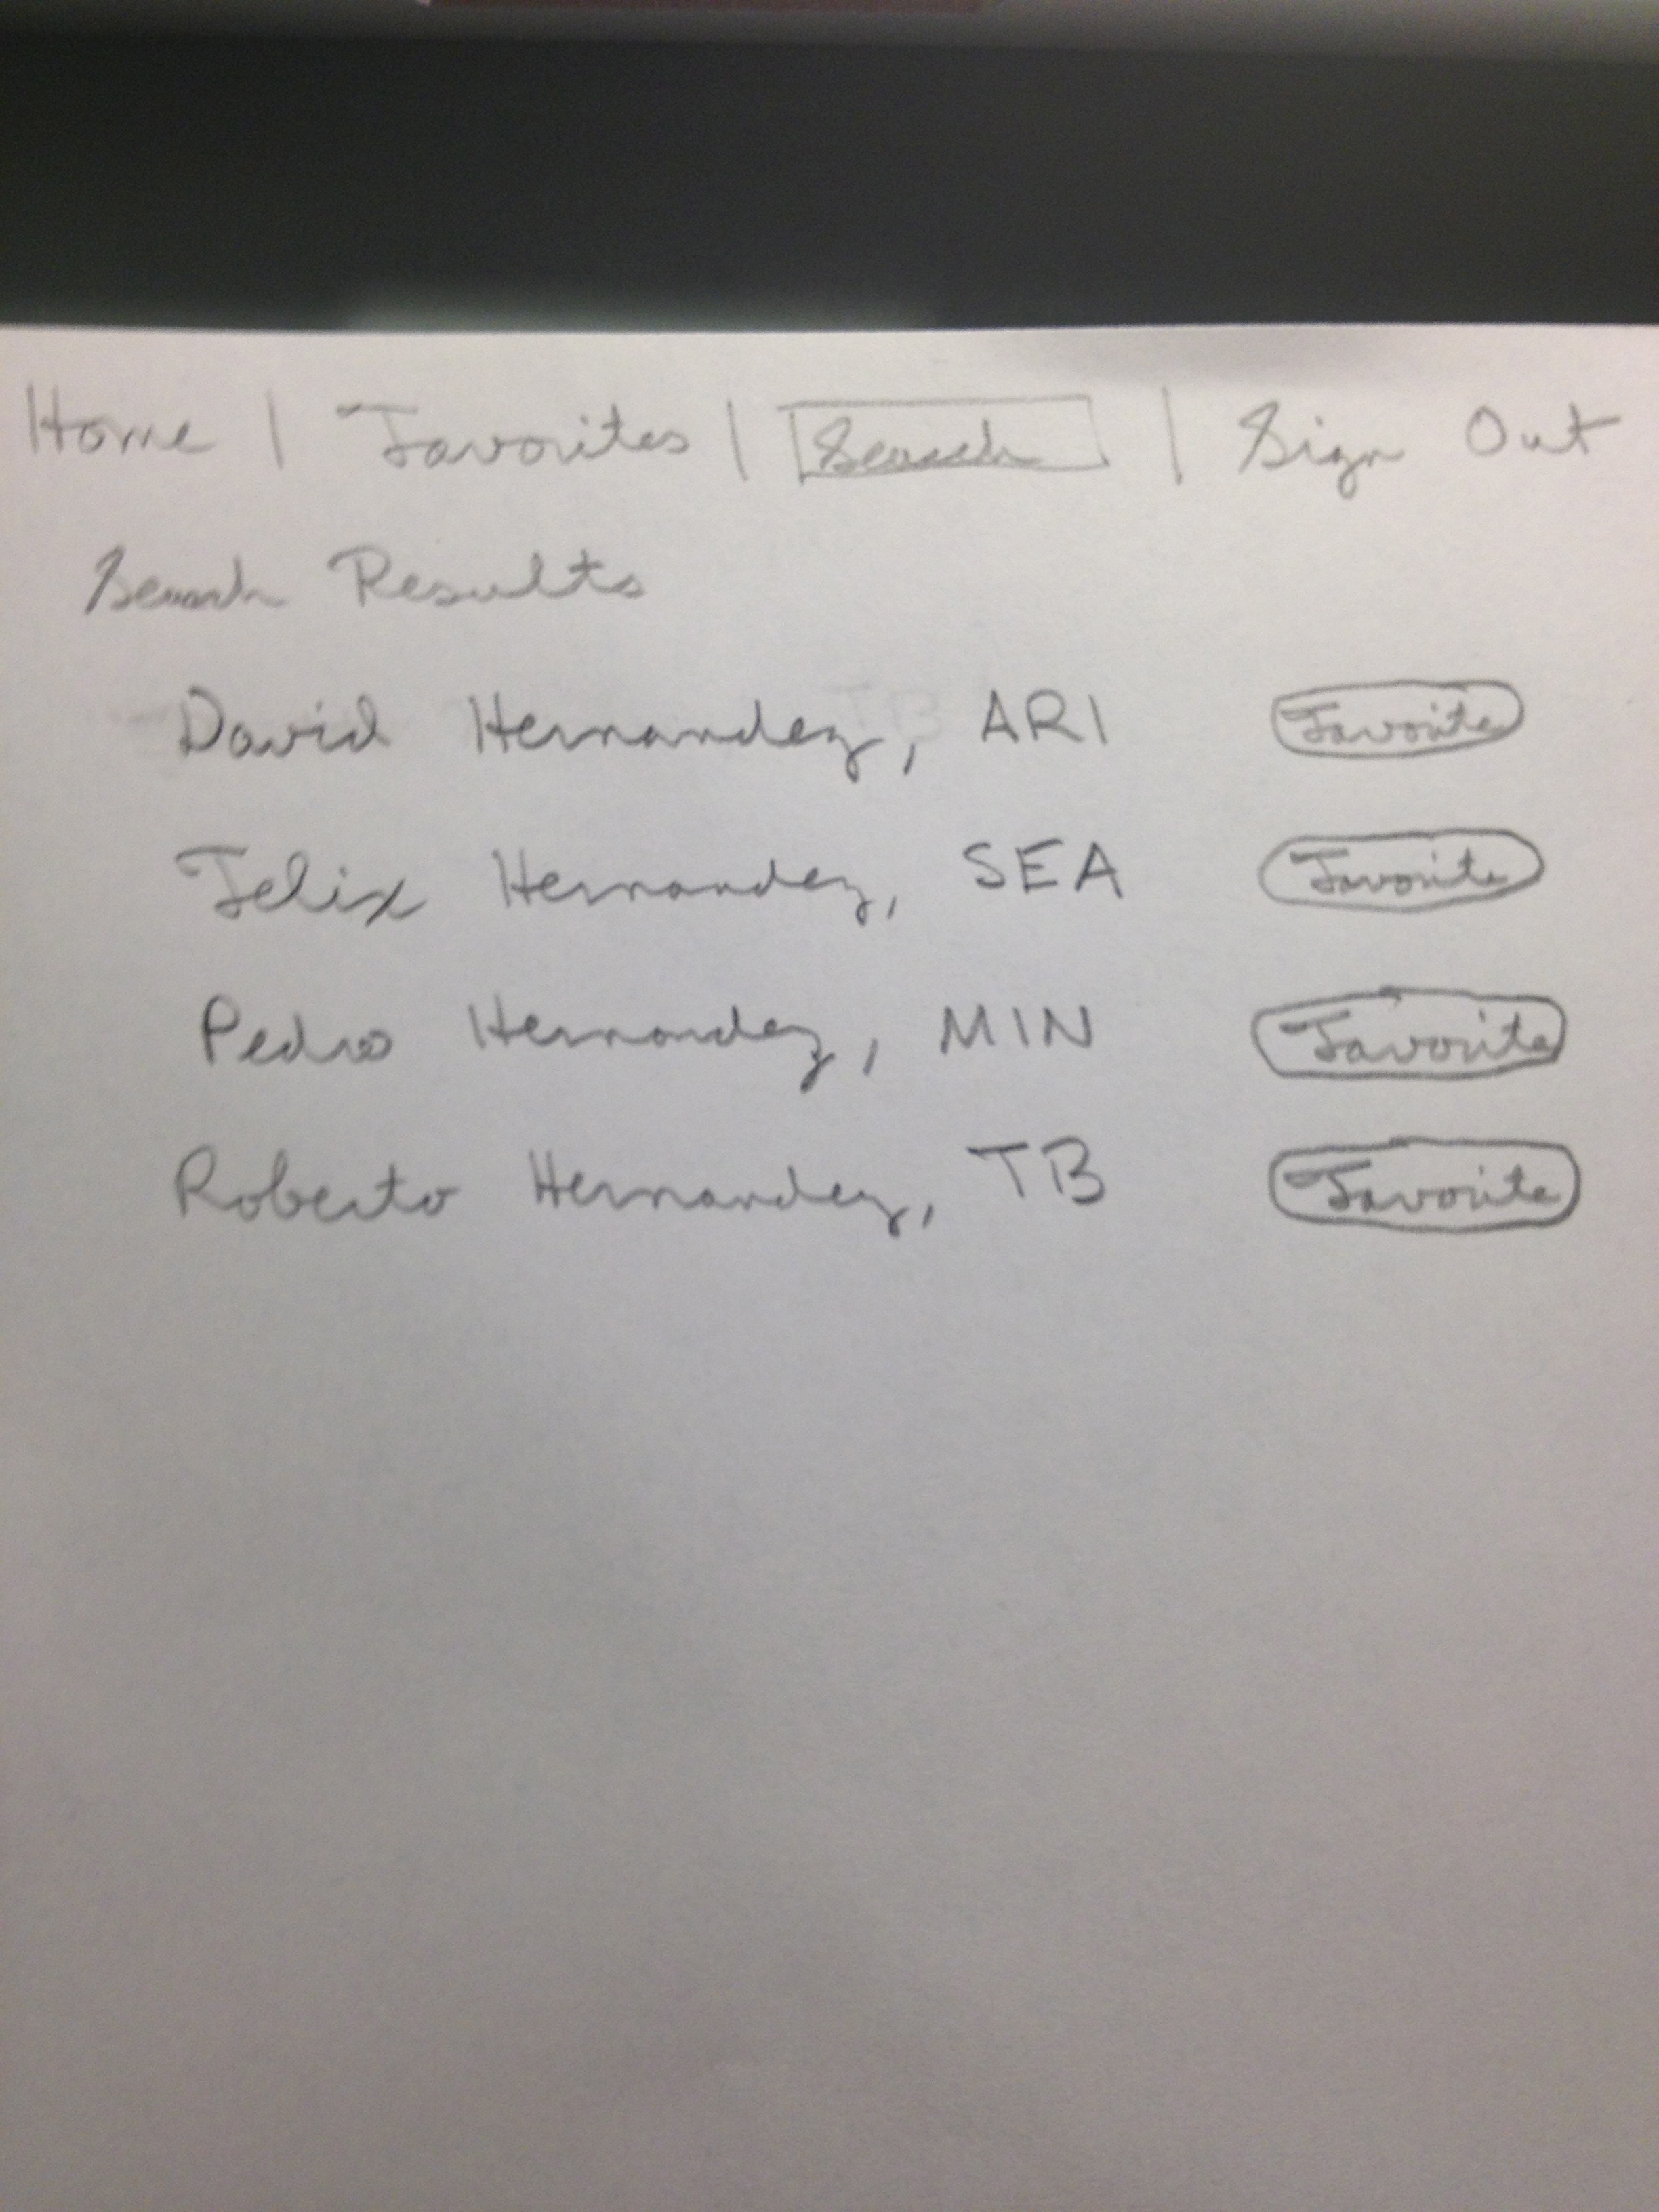 Home | Favorites | Search | Sign Out
Search Results
David Hernandez, ARI Favorite
Felix Hernandez, SEA Favorite
Pedro Hernandez, MIN Favorite
Roberto Hernandez, TB Favorite